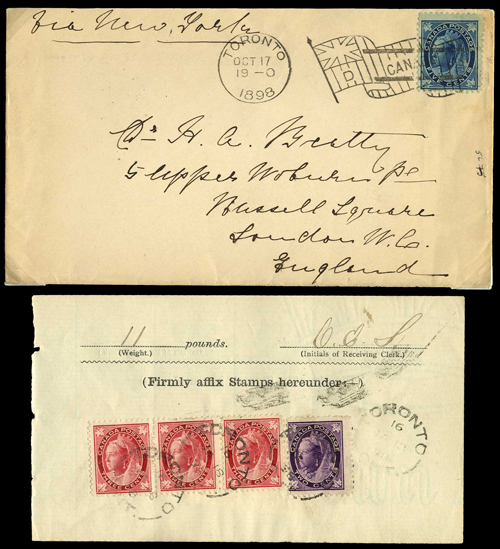 Via New York
TORONTO
OCT 17
19-0
1898
D
CANADA POSTAGE
FIVE CENTS
Dr H. A. Beatty
5 Upper Woburn Pl
Russell Square
London W.C.
England
11 pounds.
(Weight.)
(Initials of Receiving Clerk.)
(Firmly affix Stamps hereunder:—)
CANADA POSTAGE CANADA POSTAGE CANADA POSTAGE CANADA POSTAGE
THREE CENTS THREE CENTS THREE CENTS TWO CENTS
TORONTO
16